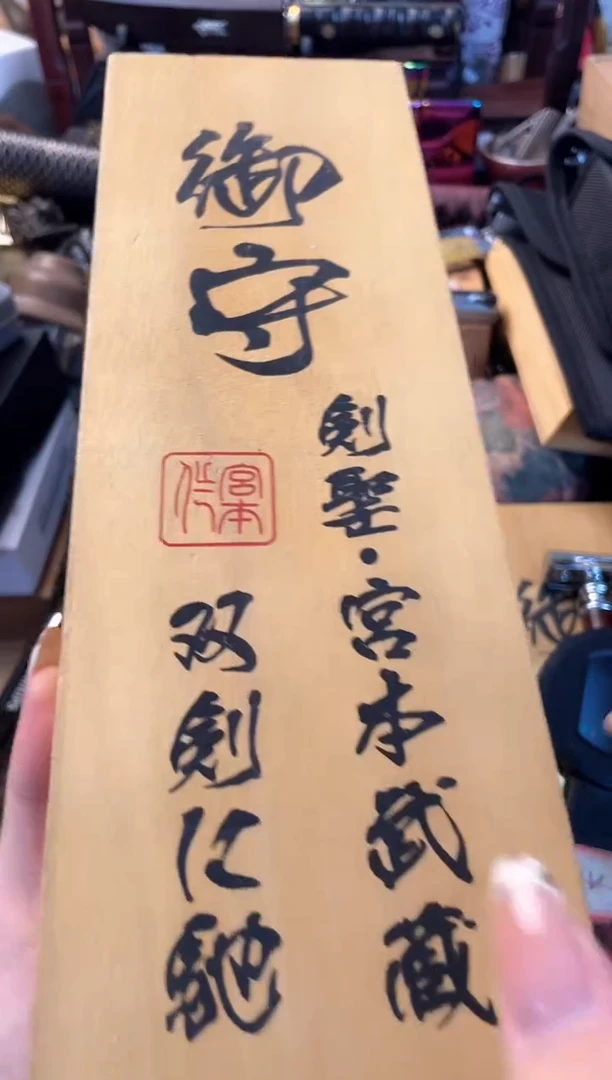 御守
剣聖・宮本武蔵
双剣に馳
宮本